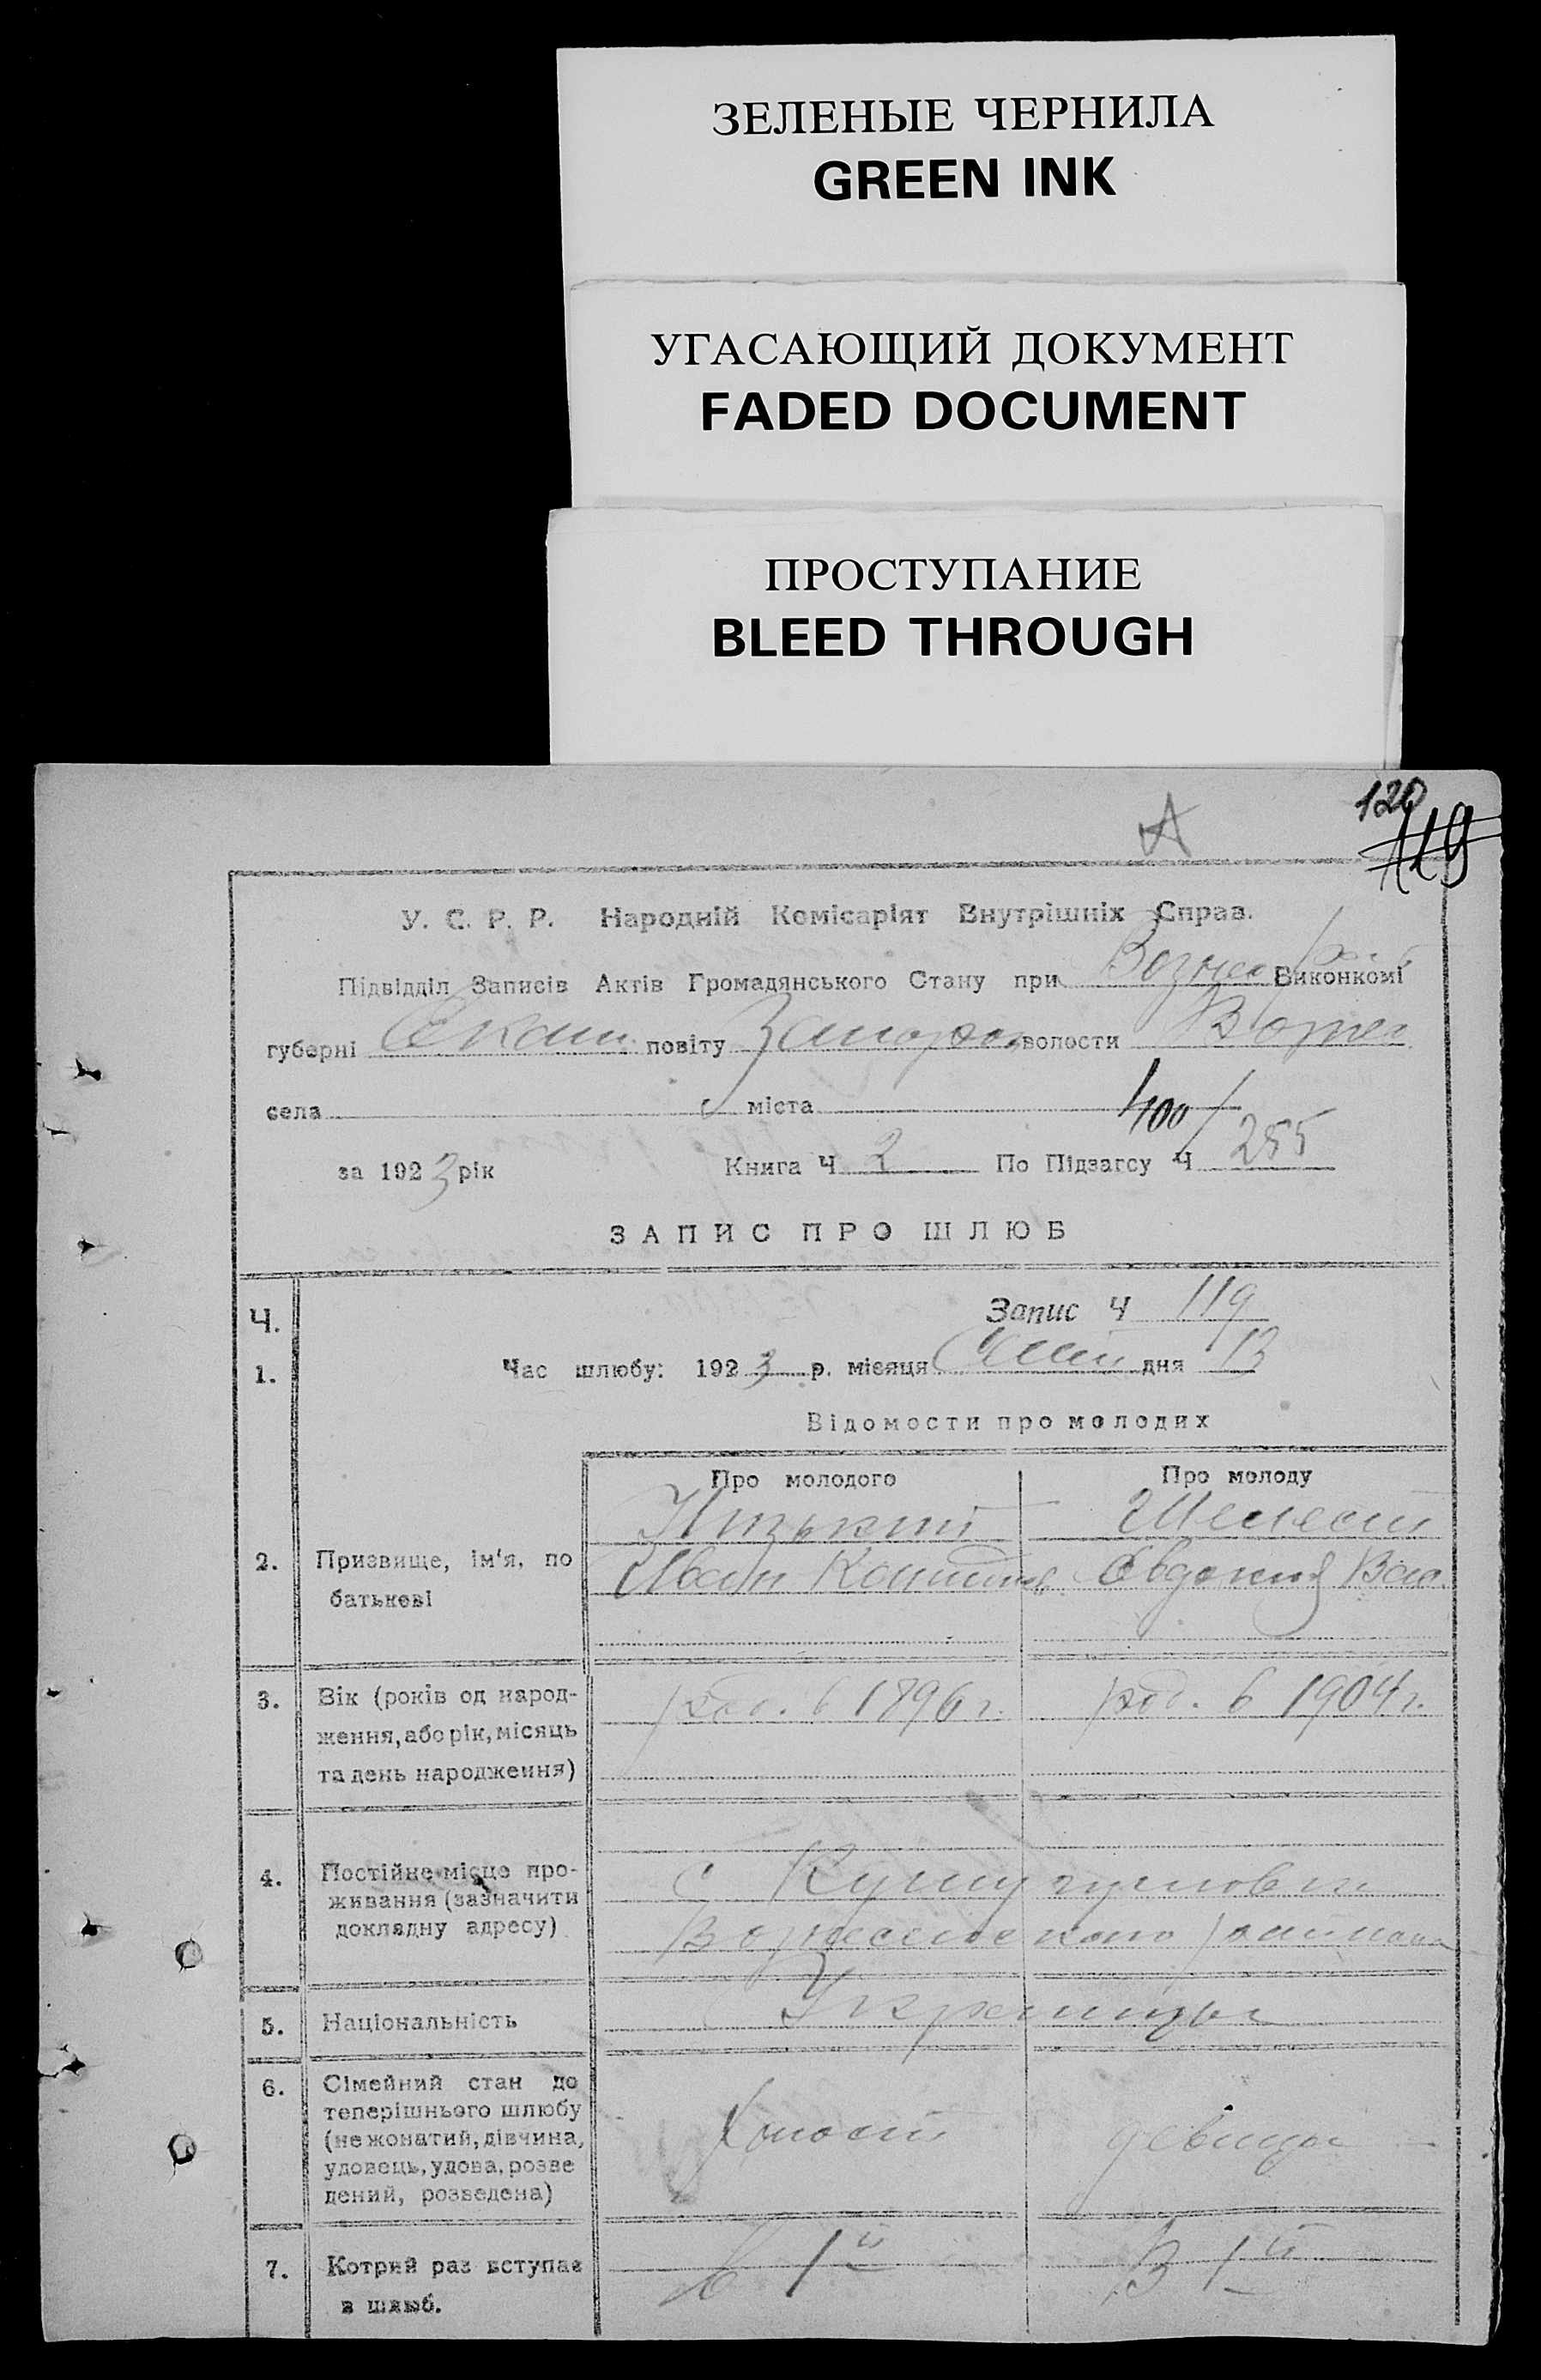 ЗЕЛЕНЫЕ ЧЕРНИЛА
GREEN INK
УГАСАЮЩИЙ ДОКУМЕНТ
FADED DOCUMENT
ПРОСТУПАНИЕ
BLEED THROUGH
А
120
119
У. С. Р. Р. Народній Комісаріят Внутрішніх Справ.
Підвідділ Записів Актів Громадянського Стану при Вознес Виконкомі
губерні Екат. повіту Запорож волости Вознес
села міста
400/
за 1923 рік Книга Ч 2 По Підзагсу Ч 255
ЗАПИС ПРО ШЛЮБ
Ч. Запис Ч 119
1. Час шлюбу: 1923 р. місяця дня 13
Відомости про молодих
Про молодого Про молоду
Низький Шелест
2. Призвище, ім'я, по Иван Констант Евдокия Вас.
батькові
3. Вік (років од народ- род. в 1896 г. род. в 1904 г.
ження, або рік, місяць
та день народження)
4. Постійне місце про- с Кушугумовки
живання (зазначити Вознесенского района
докладну адресу)
5. Національність Украинцы
6. Сімейний стан до
теперішнього шлюбу
(не жонатий, дівчина, холост девица
удовець, удова, розве
дений, розведена)
7. Котрий раз вступає в 1й В 1й
в шлюб.